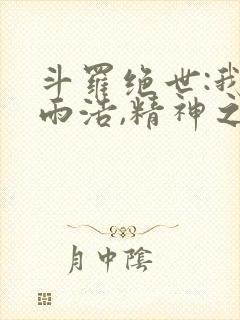 斗羅绝世:我
雨浩,精神之
月中陰